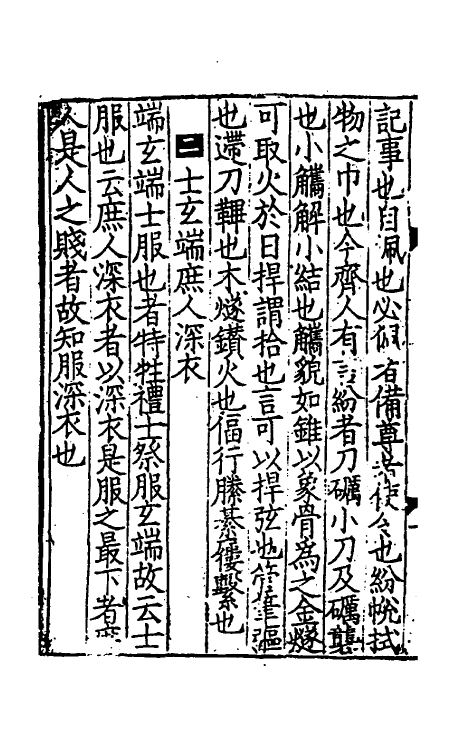 記事也自佩也必佩者備尊者使令也紛帨拭
物之巾也今齊人有言紛者刀礪小刀及礪礱
也小觿解小結也觿貌如錐以象骨爲之金燧
可取火於日捍謂拾也言可以捍弦也管筆彄
也遰刀鞞也木燧鑚火也偪行縢綦屨繫也
二 士玄端庶人深衣
端玄端士服也者特牲禮士祭服玄端故云士
服也云庶人深衣者以深衣是服之最下者
人是人之賤者故知服深衣也